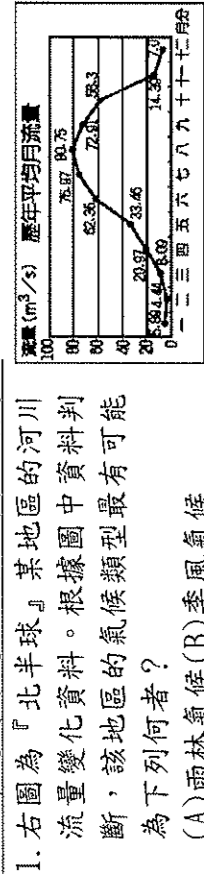 1. 右圖為『北半球』某地區的河川
流量變化資料。根據圖中資料判
斷，該地區的氣候類型最有可能
為下列何者？
(A)雨林氣候(B)季風氣候
流量(m³/s) 歷年平均月流量
100
80
60
40
20
0
4.44 6.09 20.97 33.46 62.36 76.97 80.75 72.91 58.3 14.39 7.9
一 二 三 四 五 六 七 八 九 十 十一 十二 月份